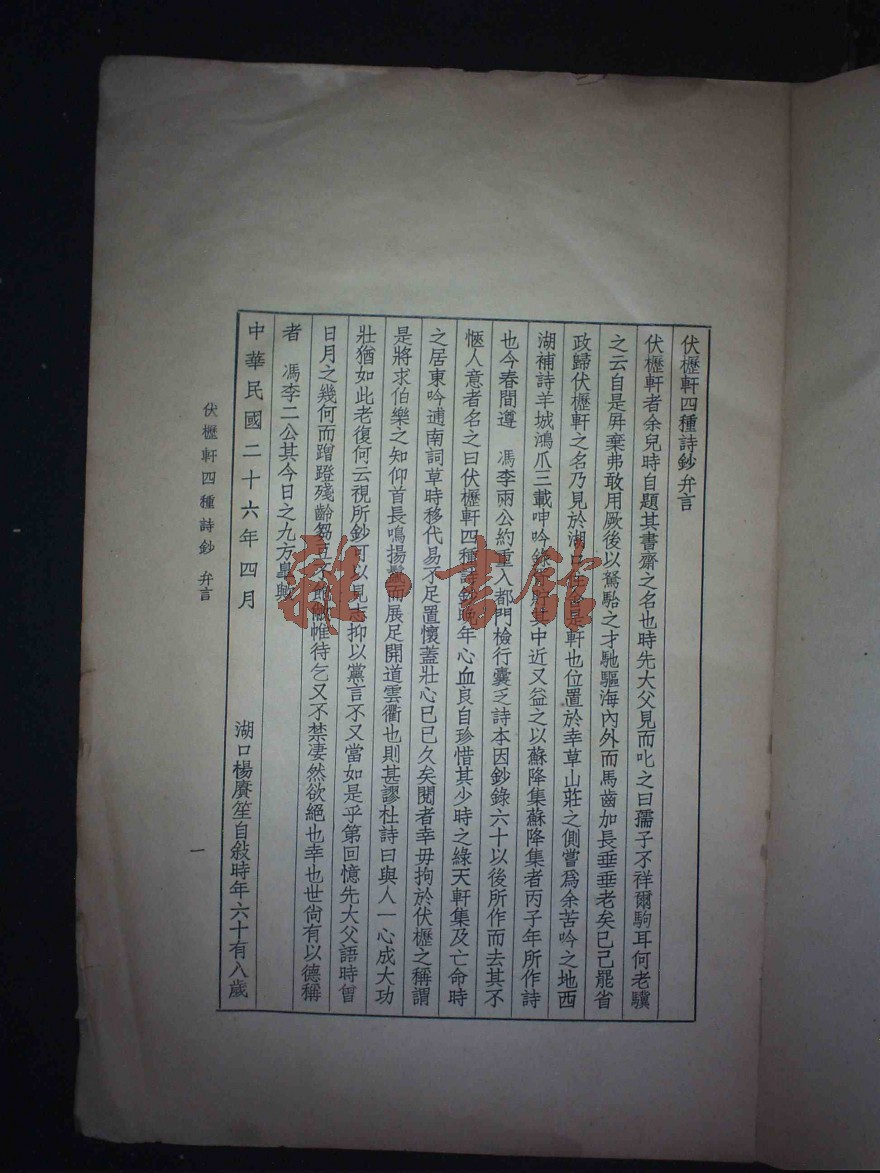 伏櫪軒四種詩鈔弁言
伏櫪軒者余兒時自題其書齋之名也時先大父見而叱之曰孺子不祥爾駒耳何老驥
之云自是屛棄弗敢用厥後以駑駘之才馳驅海內外而馬齒加長垂垂老矣己巳罷省
政歸伏櫪軒之名乃見於湖口 是軒也位置於幸草山莊之側嘗爲余苦吟之地西
湖補詩羊城鴻爪三載呻吟錄 貯其中近又益之以蘇降集蘇降集者丙子年所作詩
也今春間遵 馮李兩公約重入都門檢行囊乏詩本因鈔錄六十以後所作而去其不
愜人意者名之曰伏櫪軒四種詩鈔晚年心血良自珍惜其少時之綠天軒集及亡命時
之居東吟逋南詞草時移代易不足置懷蓋壯心已已久矣閱者幸毋拘於伏櫪之稱謂
是將求伯樂之知仰首長鳴揚鬣而展足開道雲衢也則甚謬杜詩曰與人一心成大功
壯猶如此老復何云視所鈔可以見志抑以黨言不又當如是乎第回憶先大父語時曾
日月之幾何而蹭蹬殘齡芻豆不飽敝帷待乞又不禁凄然欲絕也幸也世尙有以德稱
者 馮李二公其今日之九方臯歟
中華民國二十六年四月 湖口楊賡笙自敍時年六十有八歲
伏櫪軒四種詩鈔 弁言
一
雜·書館